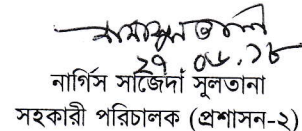 ২৭ ০৮.১৮
নার্গিস সাজেদা সুলতানা
সহকারী পরিচালক (প্রশাসন-২)